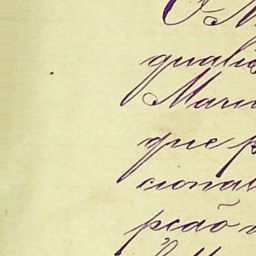 O M
quali
Mari
que p
cional
peão